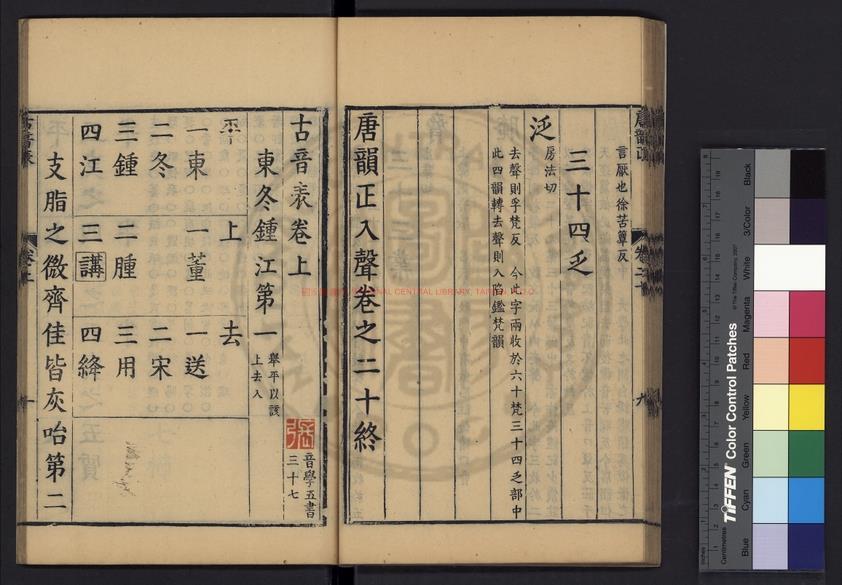 言厭也徐苦簟反
三十四乏
泛
房法切
去聲則孚梵反 今此字兩收於六十梵三十四乏部中
此四韻轉去聲則入陷鑑梵韻
唐韻正入聲卷之二十終
古音表卷上
音學五書
三十七
東冬鍾江第一
舉平以該
上去入
平 上 去
一東 一董 一送
二冬 二宋
三鍾 二腫 三用
四江 三講 四絳
支脂之微齊佳皆灰咍第二
NATIONAL CENTRAL LIBRARY, TAIWAN
TIFFEN Color Control Patches
© The Tiffen Company, 2007
Centimetres
Inches
Blue
Cyan
Green
Yellow
Red
Magenta
White
3/Color
Black